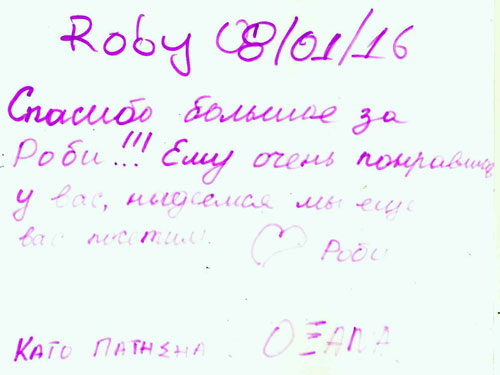 Roby 08/01/16
Спасибо большое за
Роби!!! Ему очень понравилось
у вас, надеемся мы еще
вас посетим. Роби
Като